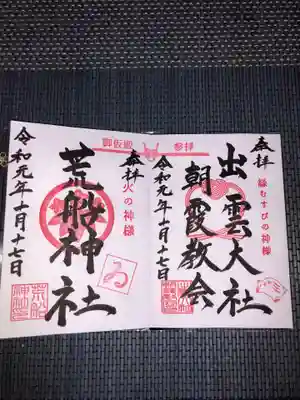 御仮殿 参拝
奉拝
縁むすびの神様
出雲大社
朝霞教会
令和元年十月十七日
奉拝
火の神様
荒船神社
令和元年十月十七日
ゐ